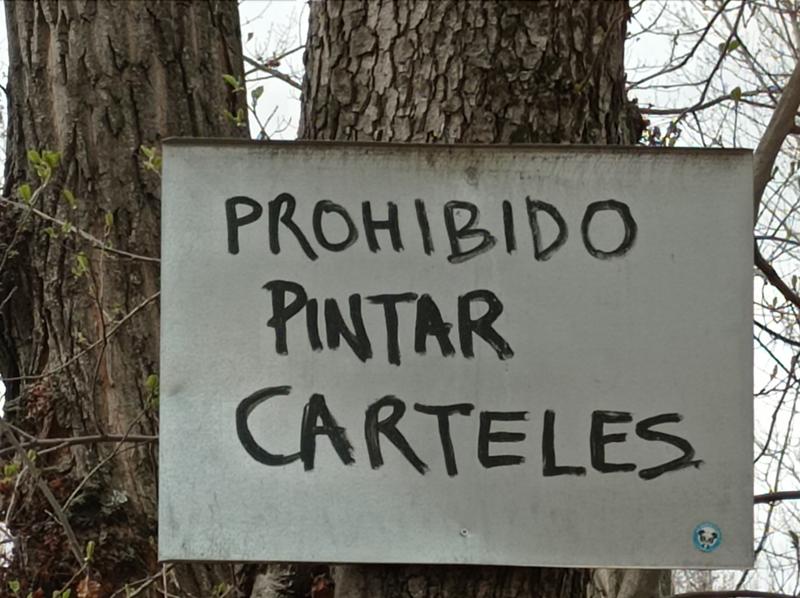 PROHIBIDO
PINTAR
CARTELES